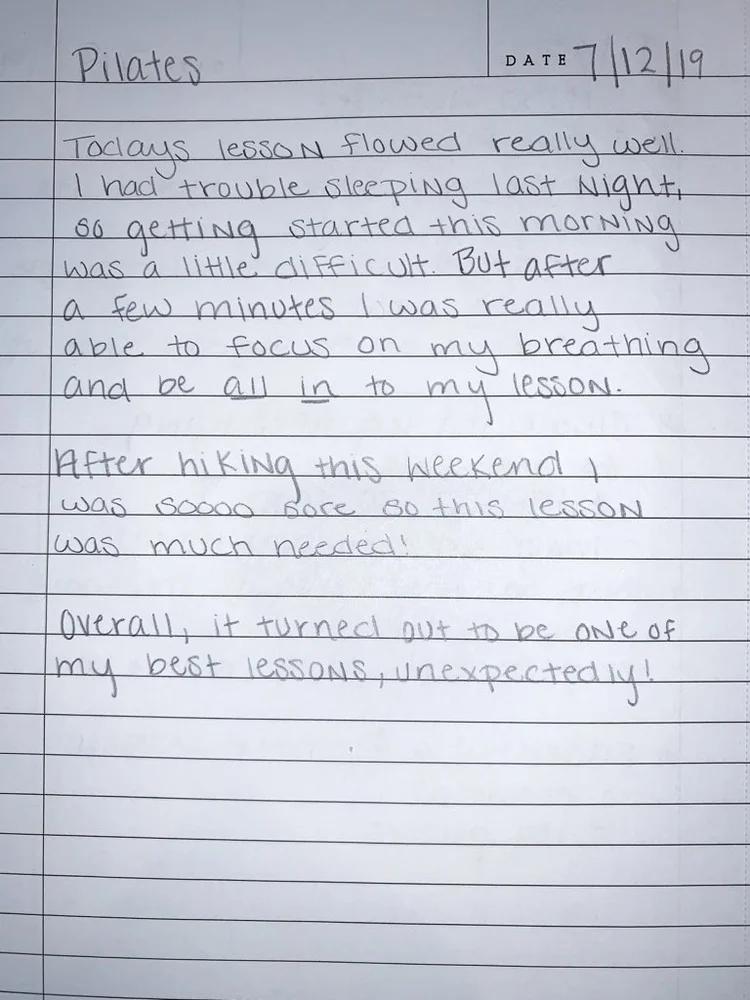 Pilates
DATE 7/12/19
Todays lesson flowed really well.
I had trouble sleeping last night,
so getting started this morning
was a little difficult. But after
a few minutes I was really
able to focus on my breathing
and be all in to my lesson.
After hiking this weekend I
was soooo sore so this lesson
was much needed!
Overall, it turned out to be one of
my best lessons, unexpectedly!